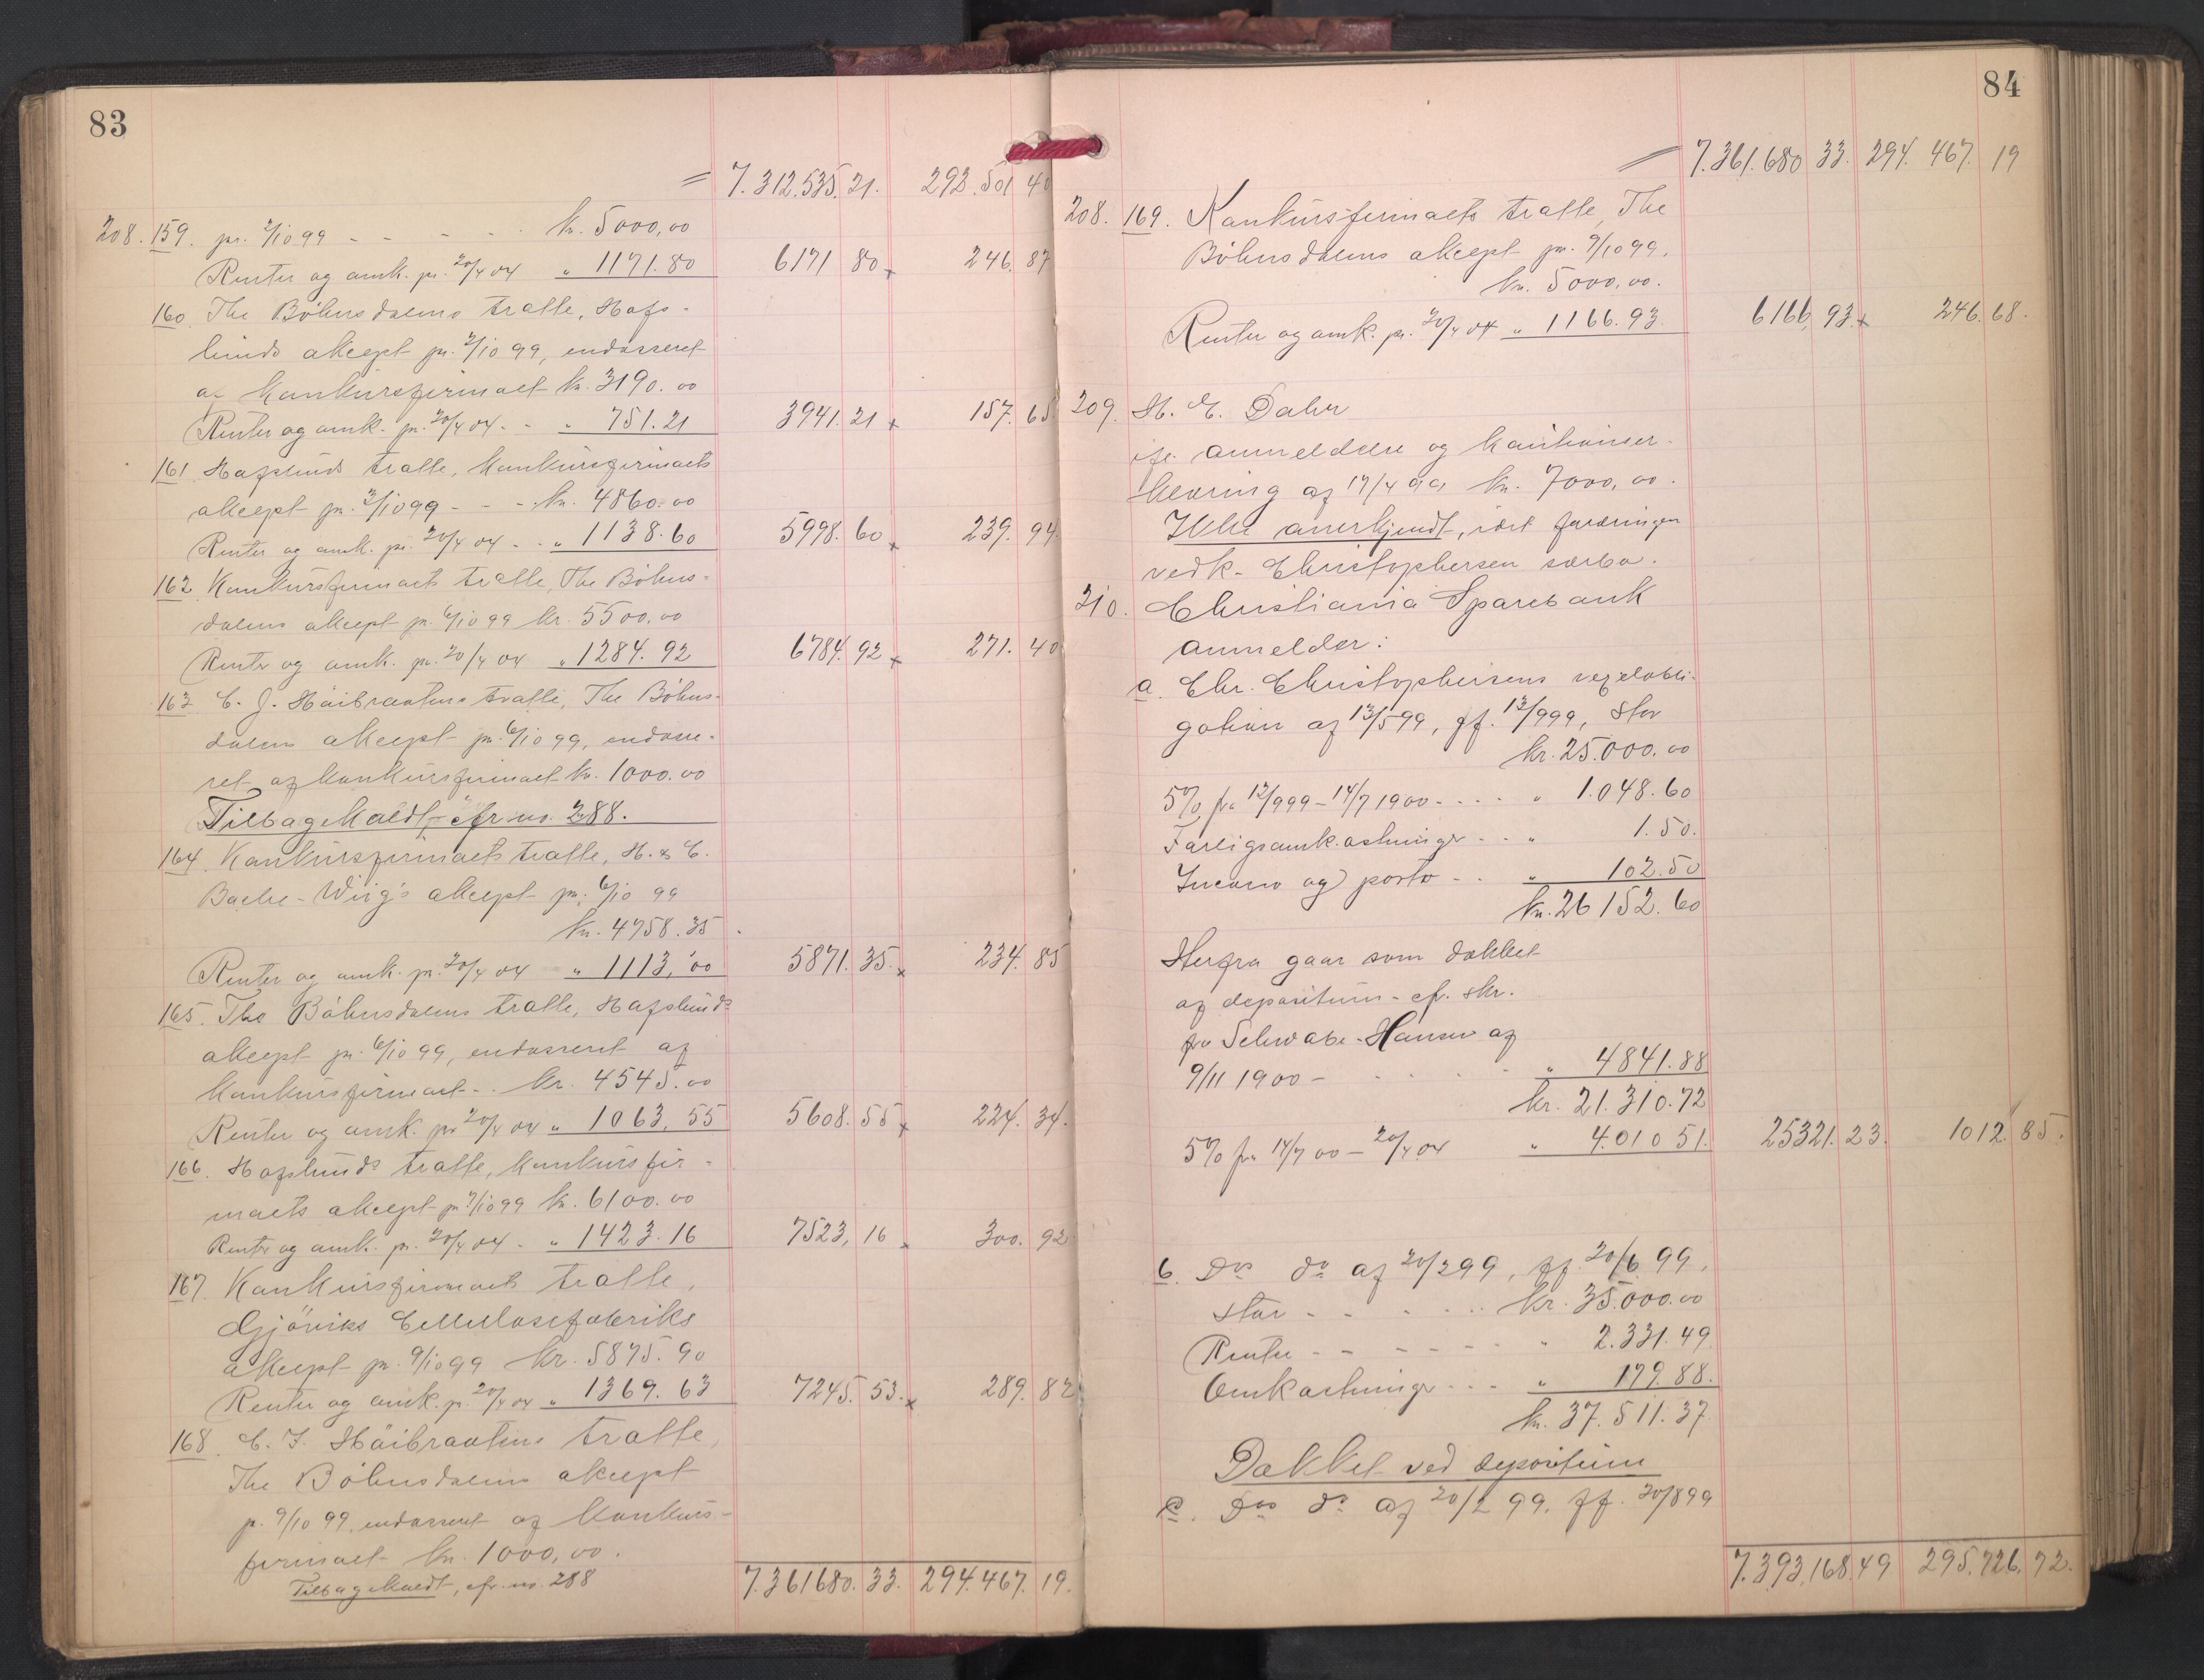 83
= 7.312.535.21. 292.501 40
208. 159. pr. 2/10 99 - - - - kr. 5000,00
Renter og omk. pr. 20/4 04 „ 1171.80 6171 80 x 246.87
160. The Böhnsdalens tratte, Hafs-
lunds akcept pr. 2/10 99, endosseret
af konkursfirmaet kr. 3190.00
Renter og omk. pr. 20/4 04 - - „ 751.21 3941.21 x 157.65
161. Hafslunds tratte, konkursfirmaets
akcept pr. 3/10 99 - - - kr. 4860.00
Renter og omk. pr. 20/4 04 - - „ 1138.60 5998.60 x 239.94
162. Konkursfirmaets tratte, The Böhns-
dalens akcept pr. 6/10 99 kr. 5500,00
Renter og omk. pr. 20/4 04 „ 1284.92 6784.92 x 271.40
163. C. J. Höibraatens tratte, The Böhns-
dalens akcept pr. 6/10 99, endosse-
ret af konkursfirmaet kr. 1000.00
Tilbagekaldt cfr. no. 288.
164. Konkursfirmaets tratte, H. & C.
Bache-Wiig's akcept pr. 6/10 99
kr. 4758.35
Renter og omk. pr. 20/4 04 „ 1113,00 5871.35. x 234.85
165. The Böhnsdalens tratte, Hafslunds
akcept pr. 6/10 99, endosseret af
konkursfirmaet - - kr. 4545.00
Renter og omk. pr. 20/4 04 „ 1063,55 5608.55 x 224.34.
166. Hafslunds tratte, konkursfir-
maets akcept pr. 7/10 99 kr. 6100.00
Renter og omk. pr. 20/4 04 - „ 1423.16 7523,16 x 300.92
167. Konkursfirmaets tratte,
Gjöviks Cellulosefabriks
akcept pr. 9/10 99 kr. 5875.90
Renter og omk. pr. 20/4 04 „ 1369.63 7245.53. x 289.82
168. C. J. Höibraatens tratte,
The Böhnsdalens akcept
p. 9/10 99, endosseret af konkurs-
firmaet kr. 1000,00.
Tilbagekaldt, cfr. no. 288
7.361680.33. 294.467.19.
84
= 7.361.680 33. 294.467.19
208. 169. Konkursfirmaets tratte, The
Böhnsdalens akcept pr. 9/10 99.
kr. 5000,00.
Renter og omk. pr. 20/4 04 „ 1166.93. 6166,93. x 246.68.
209. H. E. Dahr
ifr. anmeldelse og kautionser-
klæring af 17/4 99 kr. 7000,00.
Ikke anerkjendt, idet fordringen
vedk. Christophersen særbo.
210. Christiania Sparebank
anmelder:
a. Chr. Christophersens vexelobli-
gation af 13/5 99, ff. 13/9 99, stor
kr. 25.000.00
5% fra 13/9 99 - 14/7 1900 - - - - „ 1.048.60
Farligsomkostninger - - „ 1.50.
Incasso og porto - - „ 102.50
kr. 26152.60
Herfra gaar som dækket
af depositum - cf. skr.
fra Schwabe-Hansen af
9/11 1900 - - - - - „ 4841.88
kr. 21.310.72
5% fra 14/7 00 - 20/4 04 „ 4.010 51. 25321.23. 1012.85.
b. Do do af 20/2 99, ff. 20/6 99,
stor - - - - - kr. 35.000.00
Renter - - - - - - „ 2.331.49
Omkostninger - - - „ 179.88.
kr. 37.511.37
Dækket ved depositum
c. Do do af 20/2 99. ff. 20/8 99
7.393.168.49 295.726.72.